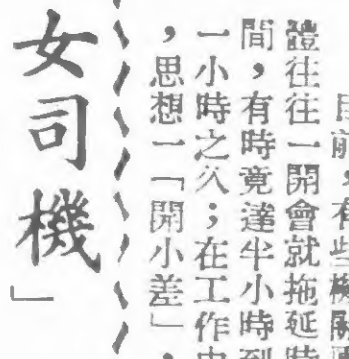 目前，有些機關團
體往往一開會就拖延時
間，有時竟達半小時到
一小時之久；在工作中
，思想一「開小差」，
女司機」